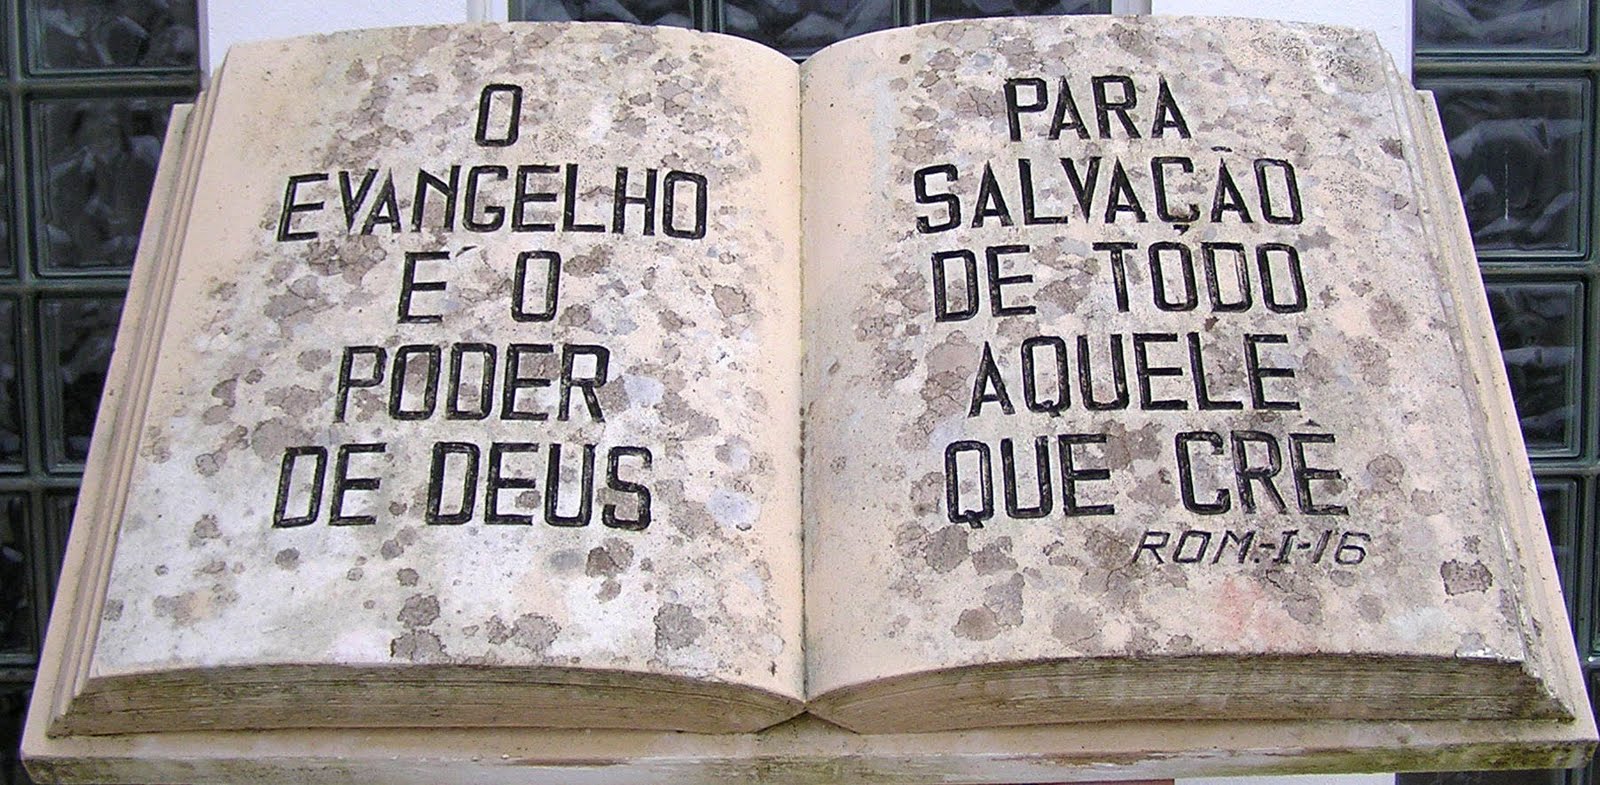 O
EVANGELHO
É O
PODER
DE DEUS
PARA
SALVAÇÃO
DE TODO
AQUELE
QUE CRÊ
ROM.-I-16